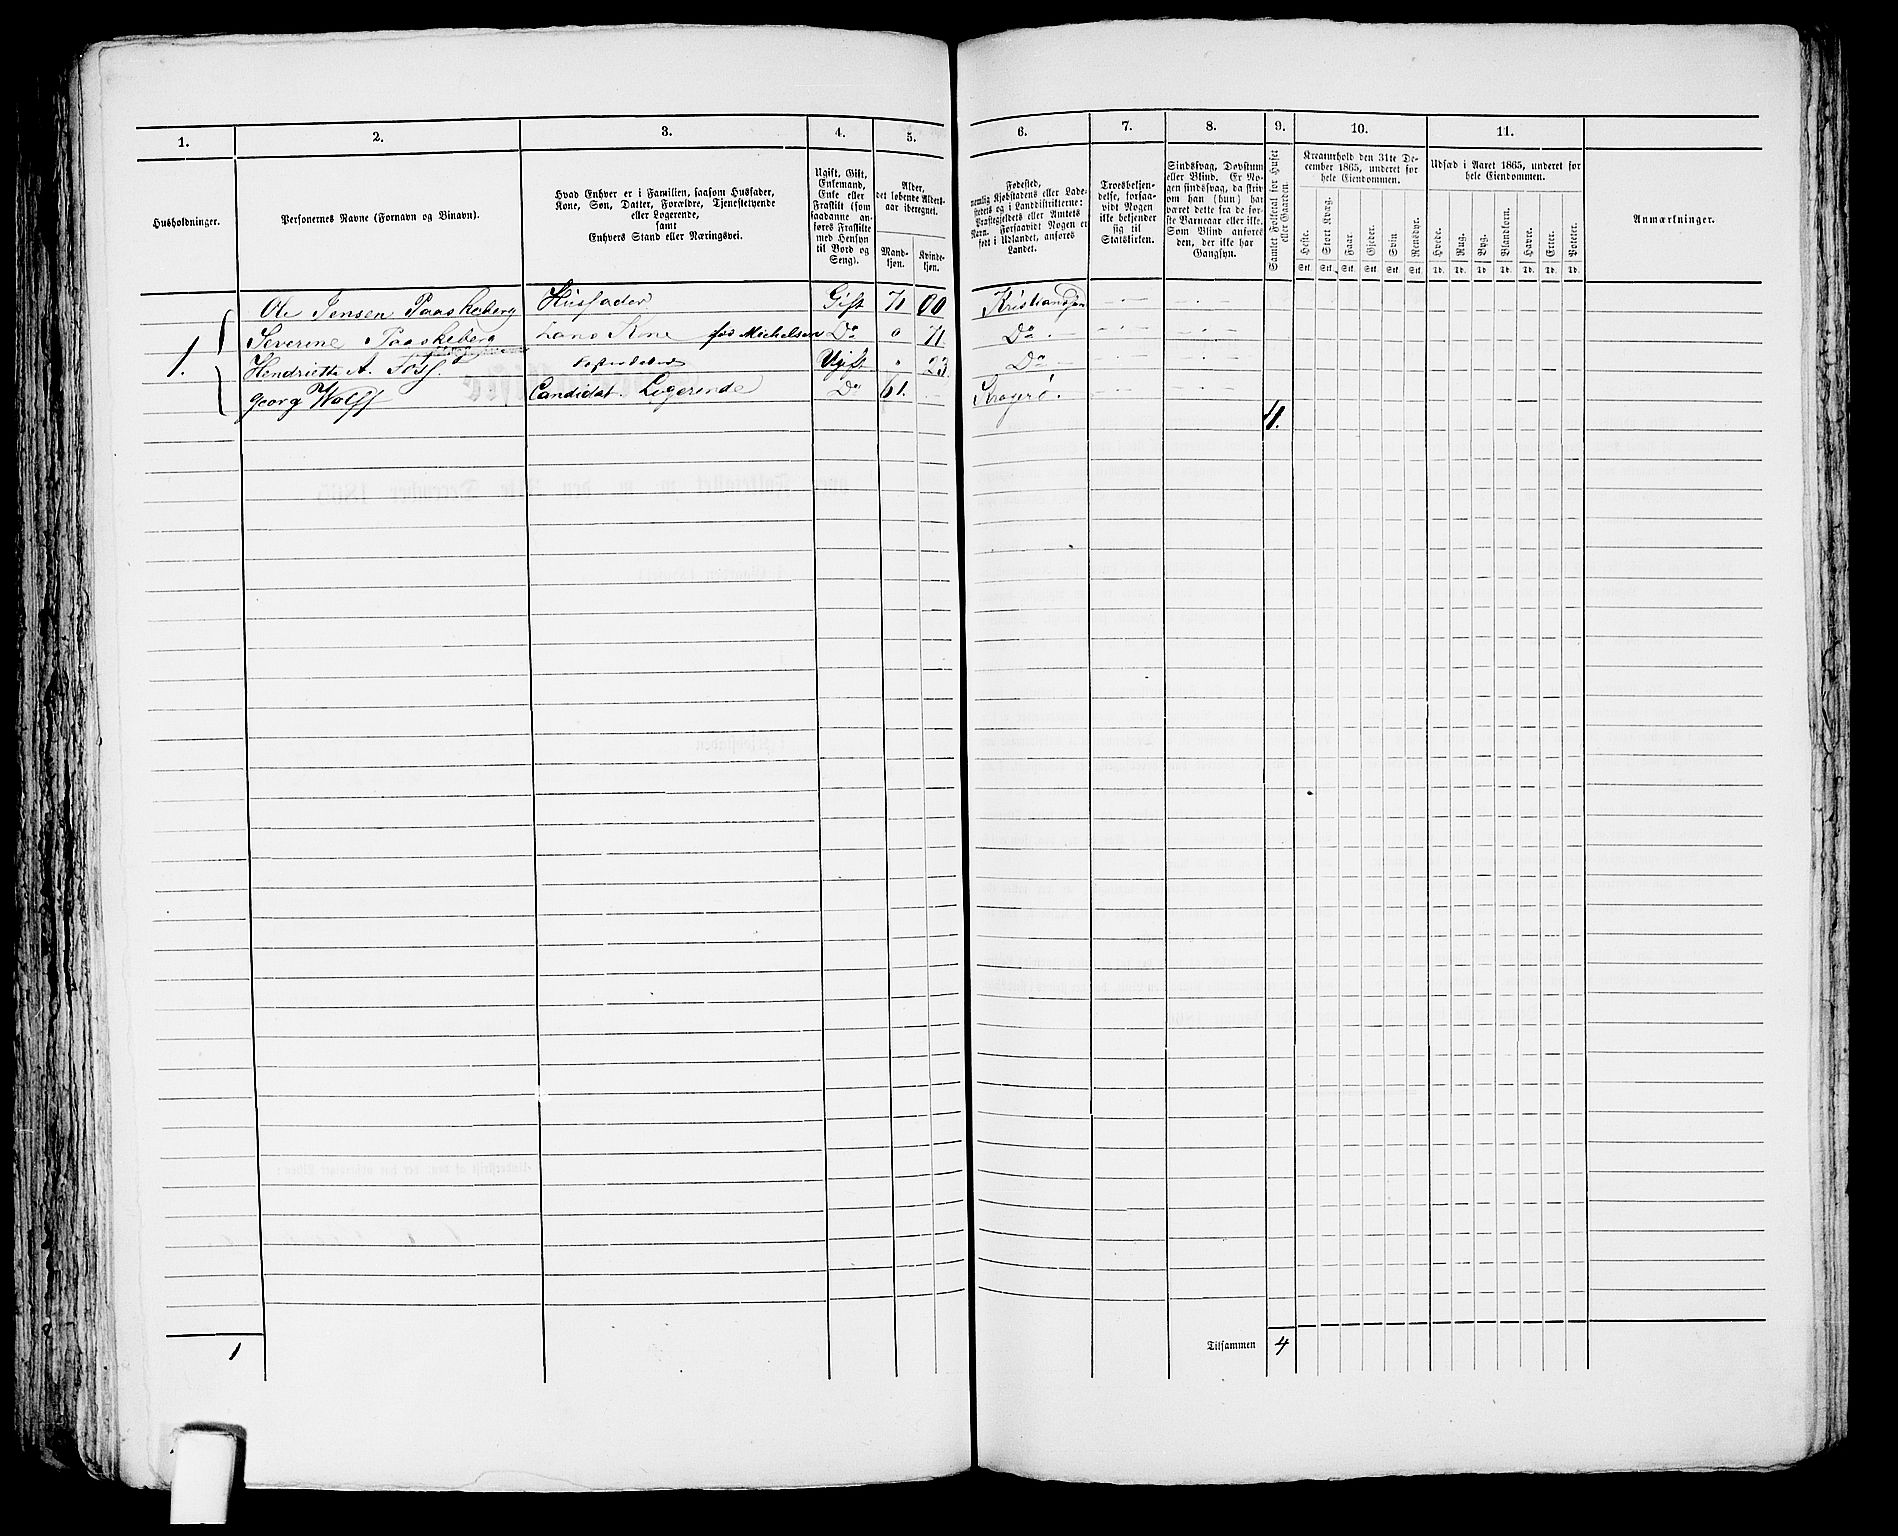 1.
2.
3.
4.
5.
6.
7.
8.
9.
10.
11.
Husholdninger.
Personernes Navne (Fornavn og Binavn).
Hvad Enhver er i Familien, saasom Husfader,
Kone, Søn, Datter, Forældre, Tjenestetyende
eller Logerende,
samt
Enhvers Stand eller Næringsvei.
Ugift, Gift,
Enkemand,
Enke eller
Fraskilt (som
saadanne an-
føres Fraskilte
med Hensyn
til Bord og
Seng).
Alder,
det løbende Alders-
aar iberegnet.
Mand-
kjøn.
Kvinde-
kjøn.
Fødested,
nemlig Kjøbstadens eller Lade-
stedets og i Landdistrikterne:
Præstegjeldets eller Amtets
Navn. Forsaavidt Nogen er
født i Udlandet, anføres
Landet.
Troesbekjen-
delse, forsaa-
vidt Nogen
ikke bekjender
sig til
Statskirken.
Sindssvag, Døvstum
eller Blind. Er No-
gen sindssvag, da skriv
om han (hun) har
været dette fra de før-
ste Barneaar eller ikke.
Som Blind anføres
den, der ikke har
Gangsyn.
Samlet Folketal for Huset
eller Gaarden.
Kreaturhold den 31te De-
cember 1865, underet for
hele Eiendommen.
Heste.
Stort Kvæg.
Faar.
Gjeder.
Svin
Rensdyr.
Stk. Stk. Stk. Stk. Stk. Stk.
Udsæd i Aaret 1865, underet for
hele Eiendommen.
Hvede.
Rug.
Byg.
Blandkorn.
Havre.
Erter.
Poteter.
Td. Td. Td. Td. Td. Td. Td.
Anmærkninger.
Ole Jensen Paaskeberg Husfader Gift 71 00 Kristiansfon
1. Severine Paaskeberg Hans Kone fød Michelsen Do 0 71 Do
Henriette A. Foss. Ugift " 23 Do
Georg Wolff Candidat. Logerende Do 61. Kragerø.
4.
1
Tilsammen 4